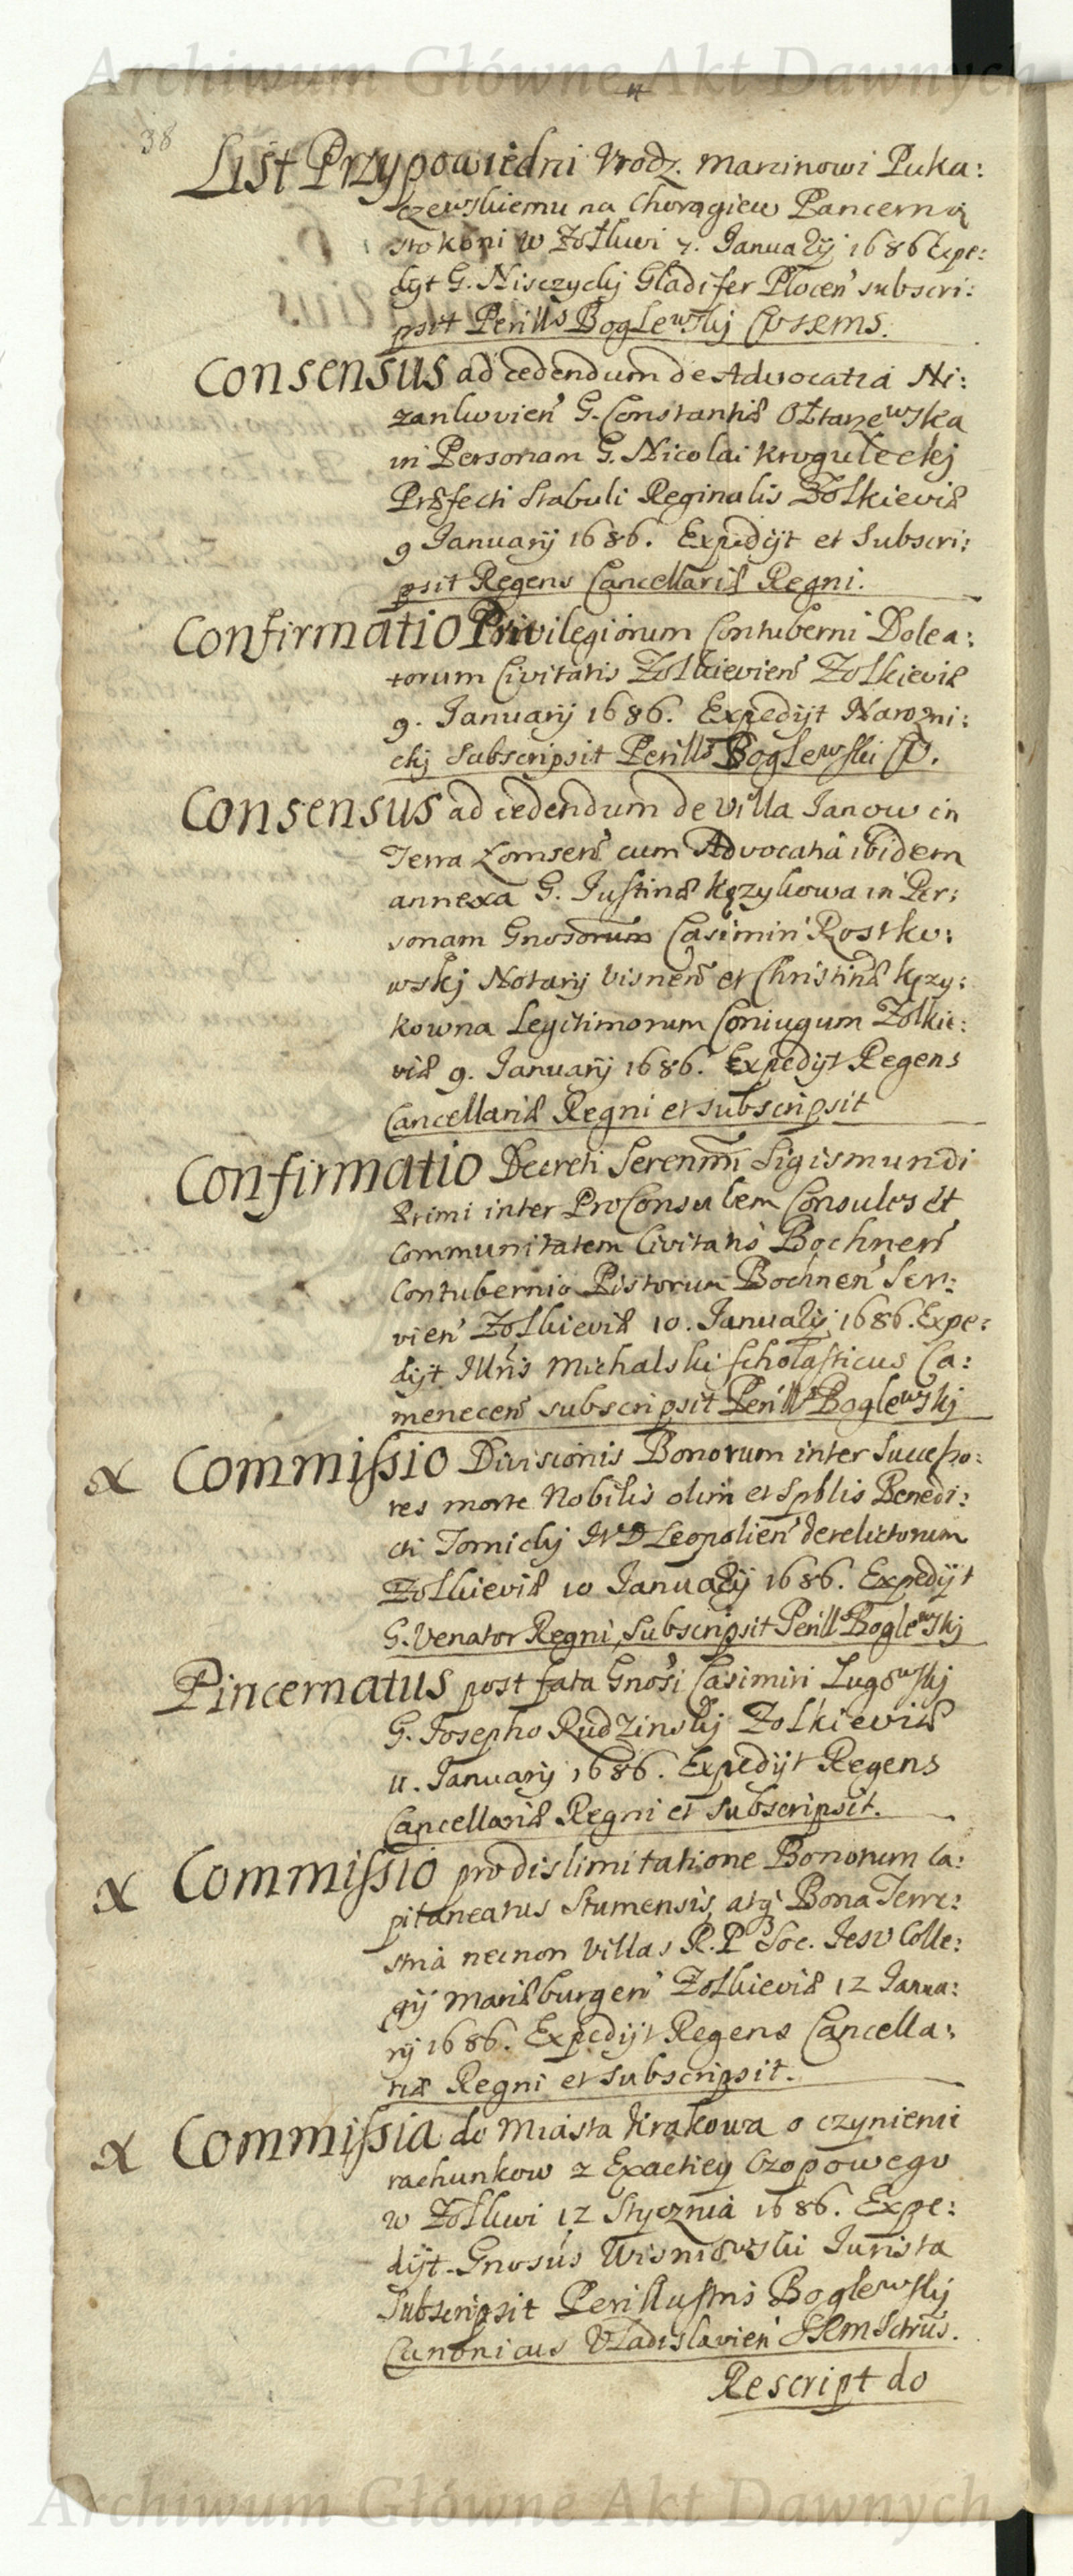 Archiwum Główne Akt Dawnych
38
List Przypowiedni Urodz. Marcinowi Puka:
czewskiemu na Chorągiew Pancerną
sto koni w Zołkwi 7. January 1686 Expe:
dyt G. Nisczycky Gladifer Plocen̄ subscri:
psit Perill͠s Boglewskj
Consensus ad cedendum de Advocatia Ni:
zankovien̄ G. Constantiæ Ołtarzewska
in Personam G. Nicolai Kroguleckj
Præfecti Stabuli Reginalis Zolkieviæ
9 Januarij 1686. Expedijt et Subscri:
psit Regens Cancellariæ Regni.
Confirmatio Privilegiorum Contuberni Dolea:
torum Civitatis Zolkievien̄ Zolkieviæ
9. Januarij 1686. Expedijt Narozni:
ckj Subscripsit Perill͠s Boglewski
Consensus ad cedendum de Villa Janow in
Terra Lomsen̄ cum Advocatia ibidem
annexa G. Justinæ Kęzykowa in Per:
sonam Gnosorum Casimiri Rostko:
wskj Notarij Visnen̄ et Christinæ Kęzy:
kowna Legitimorum Coniugum Zolkie:
viæ 9. Januarij 1686. Expedijt Regens
Cancellariæ Regni et subscripsit
Confirmatio Decreti Serenm̄i Sigismundi
Primi inter ProConsulem Consules et
Communitatem Civitatis Bochnen̄
Contubernio Pistorum Bochnen̄ Ser:
vien̄ Zolkieviæ 10. January 1686. Expe:
dijt Illr̄is Michalski Scholasticus Ca:
menecen̄ subscripsit Perill͠s Boglewskj
x Commissio Divisionis Bonorum inter Successo:
res morte Nobilis olim et Spblis Benedi:
cti Tornickj IVD Leopolien̄ derelictorum
Zolkieviæ 10 January 1686. Expedijt
G. Venator Regni, Subscripsit Perill͠s Boglewskj
Pincernatus post fata Gnosi Casimiri Lugowskj
G. Josepho Rudzinskj Zolkieviæ
11. Januarij 1686. Expedijt Regens
Cancellariæ Regni et Subscripsit.
x Commissio pro dislimitatione Bonorum Ca:
pitaneatus Stumensis, atq̓ Bona Terre:
stria necnon Villas R.P. Soc. Jesv Colle:
gij Mariæburgen̄ Zolkieviæ 12 Janua:
rij 1686. Expedijt Regens Cancella:
riæ Regni et Subscripsit.
x Commissia do Miasta Krakowa o czynienie
rachunkow z Exactiey Czopowego
w Zołkwi 12 Stycznia 1686. Expe:
dijt Gnosus Wisniowski Jurista
Subscripsit Perillustris Boglewskj
Canonicus Vladislavien̄
Rescript do
Archiwum Główne Akt Dawnych